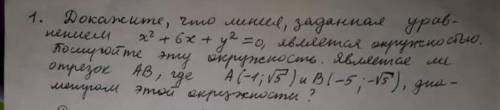 1. Докажите, что линия, заданная урав-
нением x² + 6x + y² = 0, является окружностью.
Постройте эту окружность. Является ли
отрезок AB, где A(-1; √5) и B(-5; -√5), диа-
метром этой окружности?